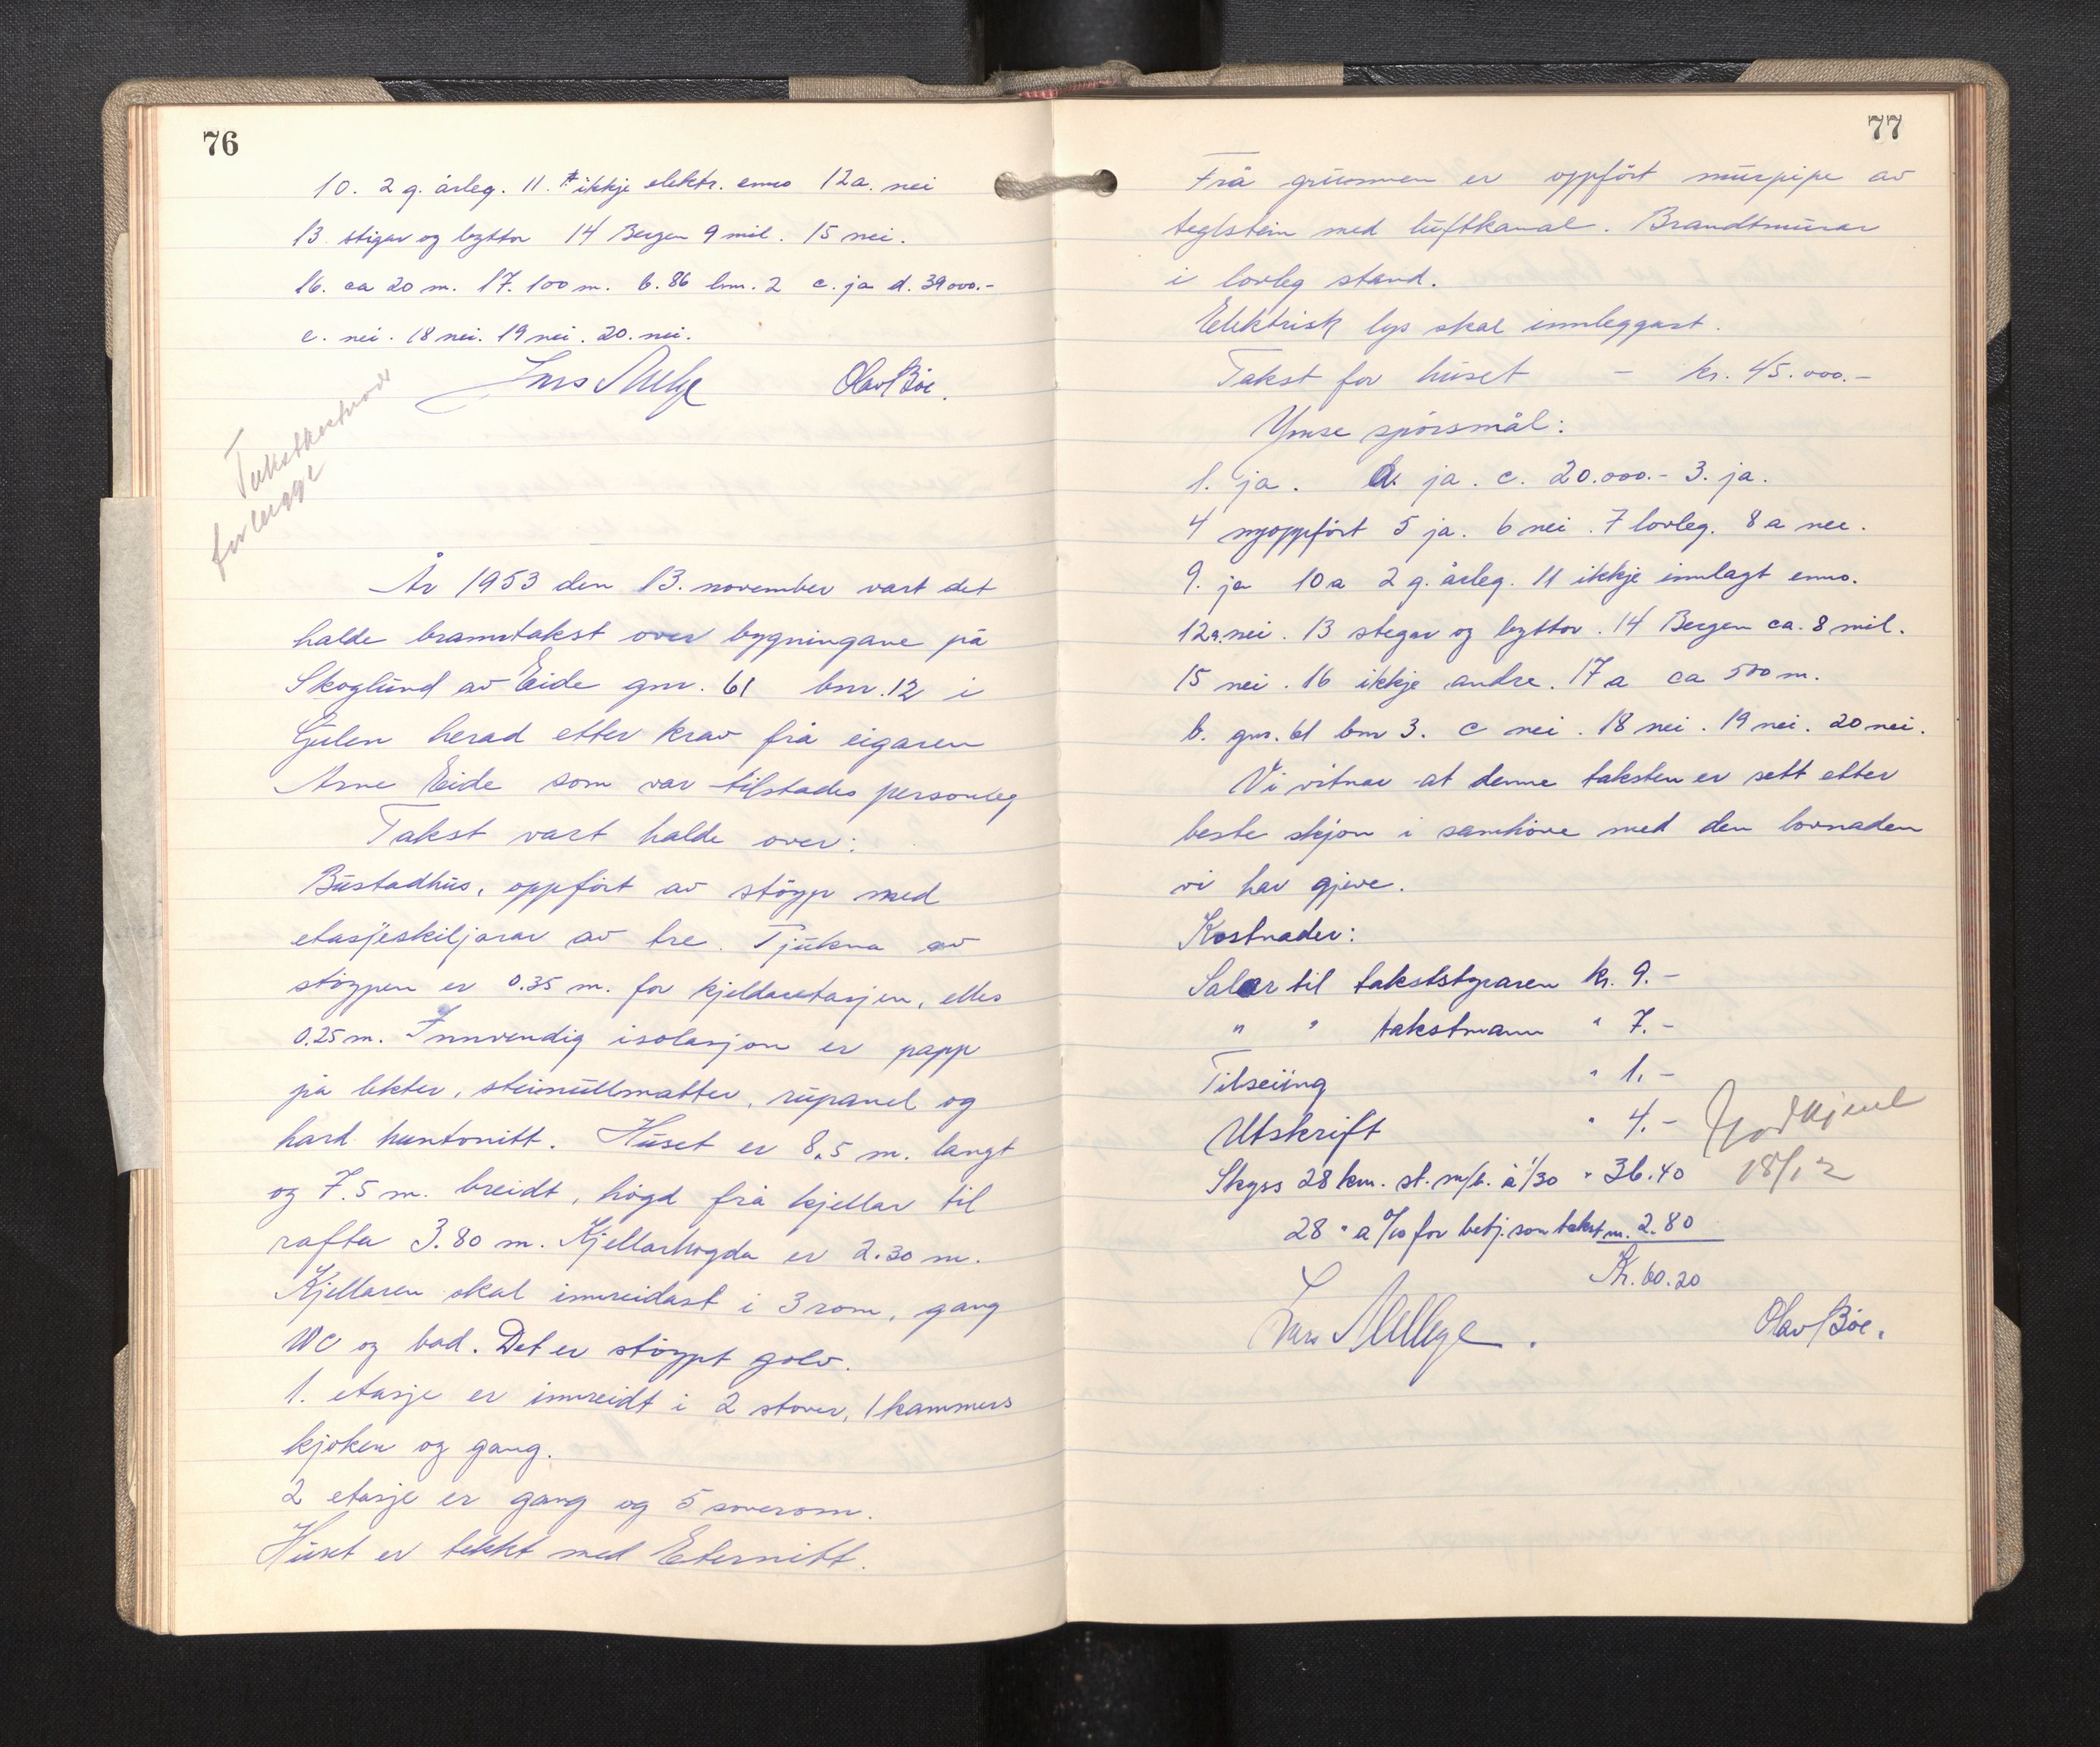 76
10. 2 g. årleg. 11. ikkje elektr. enno 12a. nei
13. stigar og bøttor 14 Bergen 9 mil. 15 nei.
16. ca 20 m. 17. 100 m. b. 86 bnr. 2 c. ja d. 39000.-
e. nei. 18 nei. 19 nei. 20. nei.
Olav Böe.
År 1953 den 13. november vart det
halde branntakst over bygningane på
Skoglund av Eide gnr. 61 bnr. 12 i
Gulen herad etter krav frå eigaren
Arne Eide som var tilstades personleg
Takst vart halde over:
Bustadhus, oppført av støyp med
etasjeskiljarar av tre. Tjukna av
støypen er 0.35 m. for kjellaretasjen, elles
0.25 m. Innvendig isolasjon er papp
på lekter, steinullmatter, rupanel og
hard huntonitt. Huset er 8.5 m. langt
og 7.5 m. breidt, högd frå kjellar til
rafta 3.80 m. Kjellarhögda er 2.30 m.
Kjellaren skal innreidast i 3 rom, gang
WC og bad. Det er støypt golv.
1. etasje er innreidt i 2 stover, 1 kammers
kjöken og gang.
2 etasje er gang og 5 soverom.
Huset er tekkt med Eternitt.
77
Frå grunnen er oppfört murpipe av
teglstein med luftkanal. Brandtmurar
i lovleg stand.
Elektrisk lys skal innleggast.
Takst for huset - kr. 45.000.-
Ymse spörsmål:
1. ja. ja. c. 20.000.- 3. ja.
4 nyoppfört 5 ja. 6 nei. 7 lovleg. 8 a nei.
9. ja 10a 2 g. årleg. 11 ikkje innlagt enno.
12a. nei. 13 stegar og bøttor. 14 Bergen ca. 8 mil.
15 nei. 16 ikkje andre. 17 a ca 500 m.
b. gnr. 61 bnr 3. c nei. 18 nei. 19 nei. 20 nei.
Vi vitnar at denne taksten er sett etter
beste skjön i samhöve med den lovnaden
vi har gjeve.
Kostnader:
Salær til takststyraren kr. 9.-
" " takstmann " 7.-
Tilseiing " 1.-
Utskrift " 4.-
Skyss 28 km. st. m/b. à 1/30 " 36.40
18/12
28 " a 0/10 for betj. som takstm. 2.80
Kr. 60.20
Olav Böe.